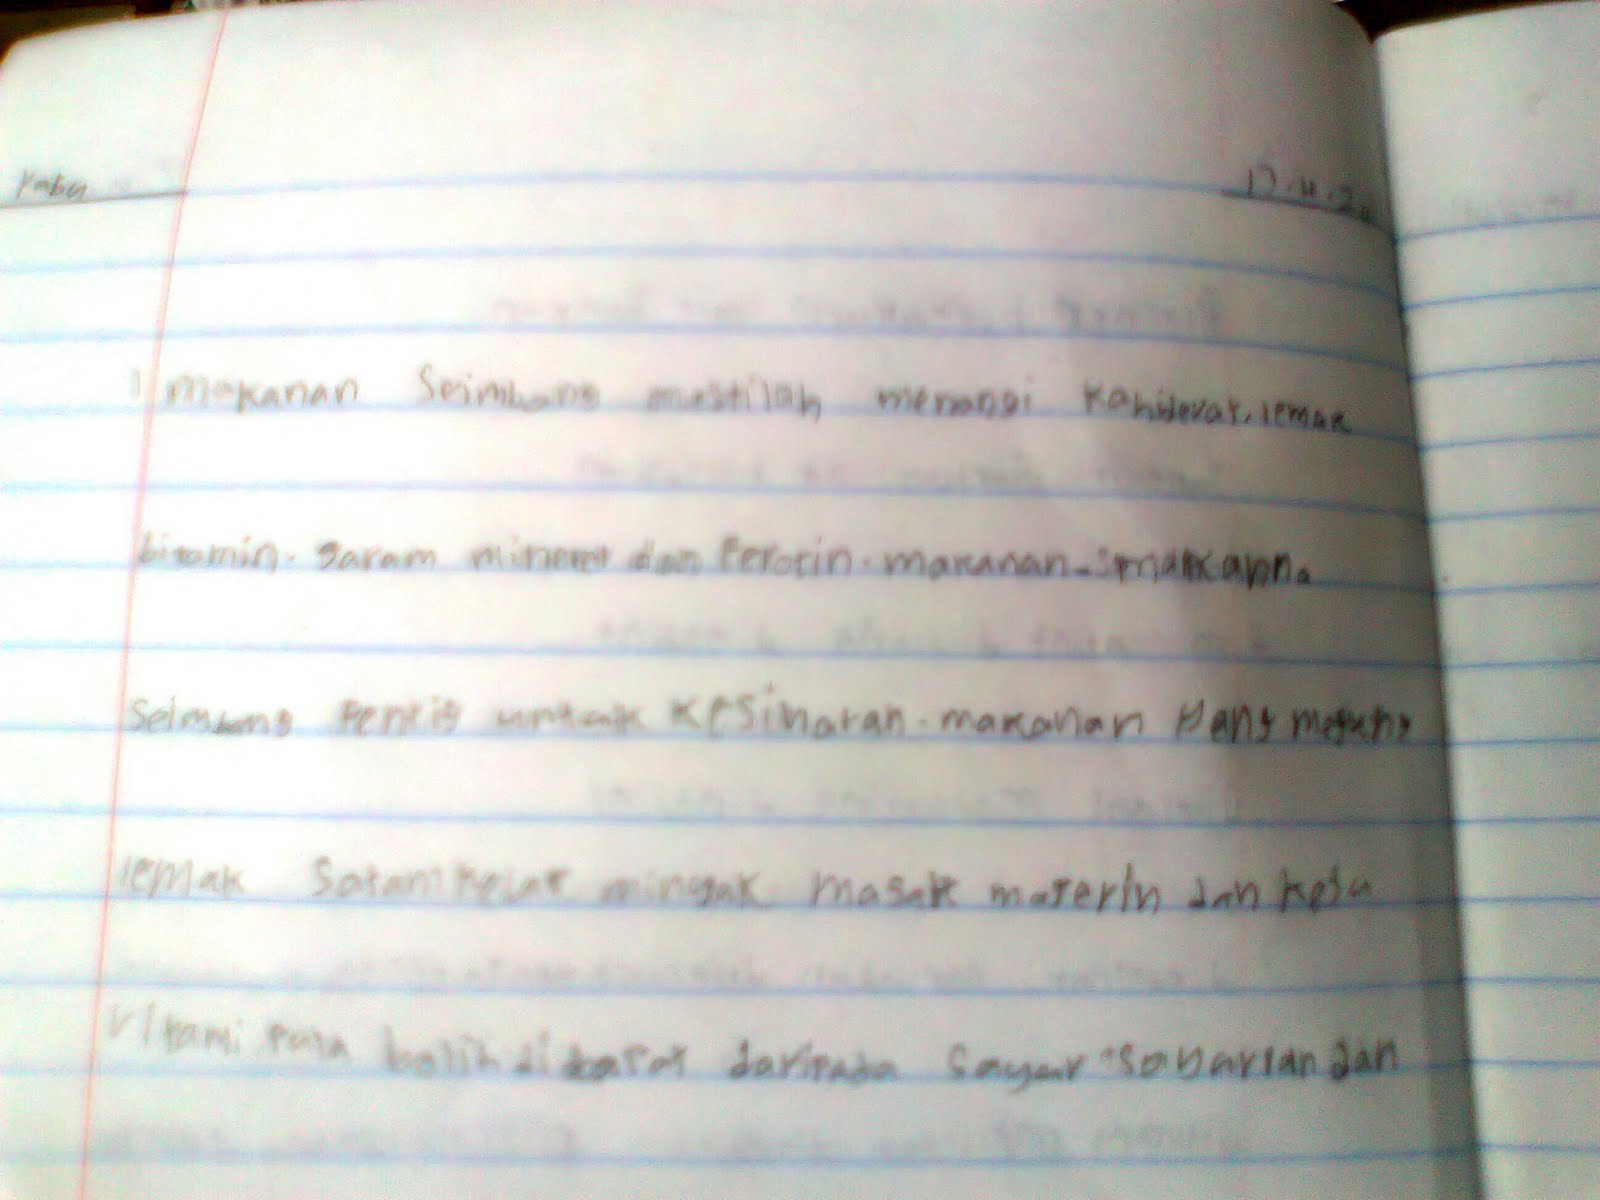 Rabu 17.4.20
1 makanan Seimbang mestilah menangi Kahiderat. lemak
bitamin. garam minerl dan Perotin. makanan
Seimbang Pentig untuk KeSiharan. makanan yang
lemak Satam kelat minyak masak materin dan keju
Vitami Pula bolih di dapat daripada Sayur-Sayurlan dan